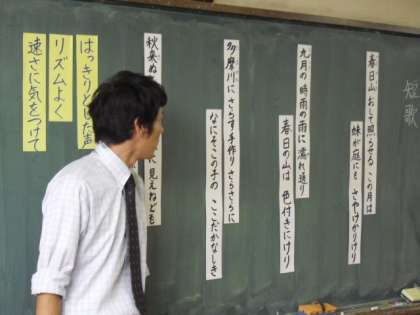 短歌
春日山 おして照らせる この月は
妹が庭にも さやけかりけり
九月の時雨の雨に濡れ通り
春日の山は 色付きにけり
多摩川に さらす手作り さらさらに
なにそこの子の ここだかなしき
秋来ぬ
に見えねども
はっきりとした声
リズムよく
速さに気をつけて